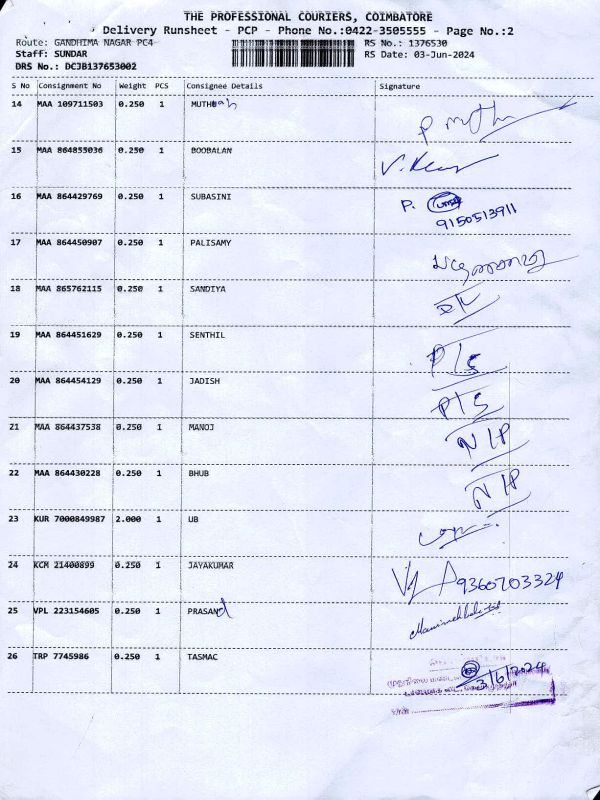 THE PROFESSIONAL COURIERS, COIMBATORE
Delivery Runsheet - PCP - Phone No.:0422-3505555 - Page No.:2
Route: GANDHIMA NAGAR PC4- RS No.: 1376530
Staff: SUNDAR RS Date: 03-Jun-2024
DRS No.: DCJB137653002
S No Consignment No Weight PCS Consignee Details Signature
14 MAA 109711503 0.250 1 MUTHUah P muthu
15 MAA 864855036 0.250 1 BOOBALAN
16 MAA 864429769 0.250 1 SUBASINI P.
9150513911
17 MAA 864450907 0.250 1 PALISAMY
18 MAA 865762115 0.250 1 SANDIYA
19 MAA 864451629 0.250 1 SENTHIL P/S
20 MAA 864454129 0.250 1 JADISH P/S
21 MAA 864437538 0.250 1 MANOJ N/P
22 MAA 864430228 0.250 1 BHUB N/P
23 KUR 7000849987 2.000 1 UB
24 KCM 21400899 0.250 1 JAYAKUMAR 9360703324
25 VPL 223154605 0.250 1 PRASANd
26 TRP 7745986 0.250 1 TASMAC 3/6/2024